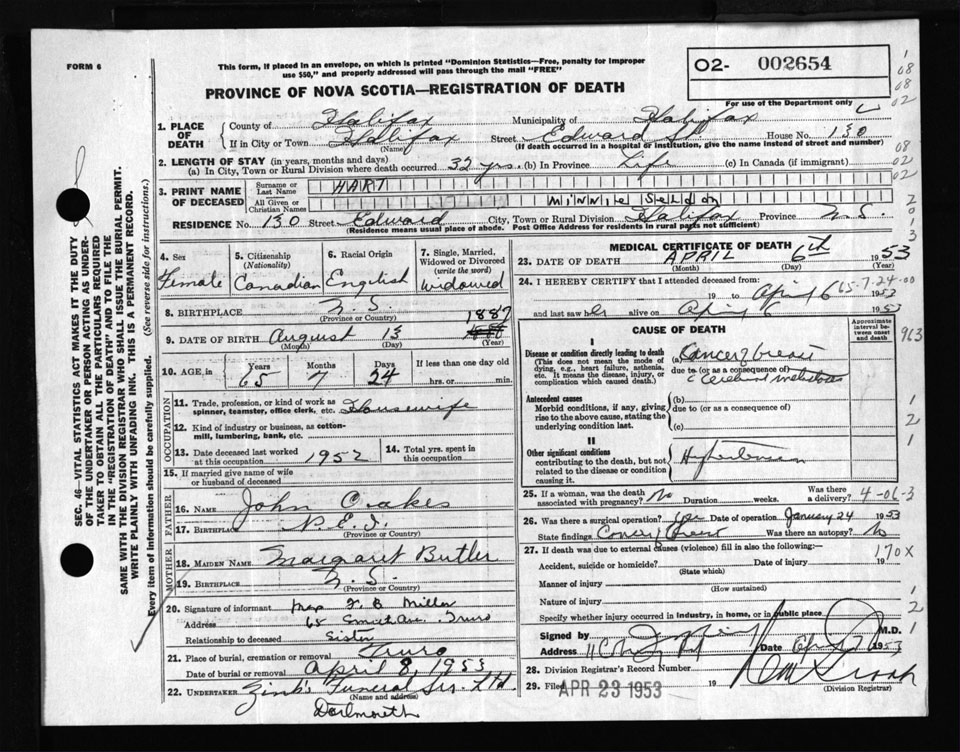 FORM 6
This form, if placed in an envelope, on which is printed "Dominion Statistics—Free, penalty for improper
use $50," and properly addressed will pass through the mail "FREE"
02- 002654
For use of the Department only
PROVINCE OF NOVA SCOTIA—REGISTRATION OF DEATH
1. PLACE OF DEATH
County of Halifax Municipality of Halifax
If in City or Town Halifax Street Edward St House No. 130
(Name) (If death occurred in a hospital or institution, give the name instead of street and number)
2. LENGTH OF STAY (in years, months and days)
(a) In City, Town or Rural Division where death occurred 32 yrs. (b) In Province Life (c) In Canada (if immigrant)
3. PRINT NAME OF DECEASED
Surname or Last Name HART
All Given or Christian Names MINNIE Seldon
RESIDENCE No. 130 Street Edward City, Town or Rural Division Halifax Province N.S.
(Residence means usual place of abode. Post Office Address for residents in rural parts not sufficient)
4. Sex Female
5. Citizenship (Nationality) Canadian
6. Racial Origin English
7. Single, Married, Widowed or Divorced (write the word) Widowed
8. BIRTHPLACE N.S.
(Province or Country)
9. DATE OF BIRTH August 13 1887
(Month) (Day) (Year)
10. AGE in Years 65 Months 7 Days 24 If less than one day old
hrs. or min.
OCCUPATION
11. Trade, profession, or kind of work as spinner, teamster, office clerk, etc. Housewife
12. Kind of industry or business, as cotton-mill, lumbering, bank, etc.
13. Date deceased last worked at this occupation 1952
14. Total yrs. spent in this occupation
15. If married give name of wife or husband of deceased
FATHER
16. NAME John Oakes
17. BIRTHPLACE P.E.I.
(Province or Country)
MOTHER
18. MAIDEN NAME Margaret Butler
19. BIRTHPLACE N.S.
(Province or Country)
20. Signature of informant Mrs F. B Miller
Address 65 Smith Ave. Truro
Relationship to deceased Sister
21. Place of burial, cremation or removal Truro
Date of burial or removal April 8, 1953
22. UNDERTAKER Zink's Funeral Ser. Ltd.
(Name and address)
Dartmouth
MEDICAL CERTIFICATE OF DEATH
23. DATE OF DEATH APRIL 6th 1953
(Month) (Day) (Year)
24. I HEREBY CERTIFY that I attended deceased from:
19 to April 6 1953
65-7-24-00
and last saw her alive on April 6 1953
CAUSE OF DEATH
Approximate interval between onset and death
I
Disease or condition directly leading to death
(This does not mean the mode of dying, e.g., heart failure, asthenia, etc. It means the disease, injury, or complication which caused death.)
(a) Cancer of breast
due to (or as a consequence of)
c Cerebral metastases
Antecedent causes
Morbid conditions, if any, giving rise to the above cause, stating the underlying condition last.
(b)
due to (or as a consequence of)
(c)
II
Other significant conditions
contributing to the death, but not related to the disease or condition causing it.
Hypertension
25. If a woman, was the death associated with pregnancy? No Duration weeks. Was there a delivery?
4-06-3
26. Was there a surgical operation? yes Date of operation January 24 1953
State findings Cancer of breast Was there an autopsy? No
27. If death was due to external causes (violence) fill in also the following:—
170X
Accident, suicide or homicide? Date of injury 19
(State which)
Manner of injury
(How sustained)
Nature of injury
Specify whether injury occurred in industry, in home, or in public place
Signed by M.D.
Address Date April 7 1953
28. Division Registrar's Record Number
29. Filed APR 23 1953 19
(Division Registrar)
SEC. 46—VITAL STATISTICS ACT MAKES IT THE DUTY
OF THE UNDERTAKER OR PERSON ACTING AS UNDER-
TAKER TO OBTAIN ALL THE PARTICULARS REQUIRED
IN THE "REGISTRATION OF DEATH" AND TO FILE THE
SAME WITH THE DIVISION REGISTRAR WHO SHALL ISSUE THE BURIAL PERMIT.
WRITE PLAINLY WITH UNFADING INK. THIS IS A PERMANENT RECORD.
Every item of information should be carefully supplied. (See reverse side for instructions.)
1
08
08
02
08
02
02
2
0
1
3
963
1
2
1
2
1